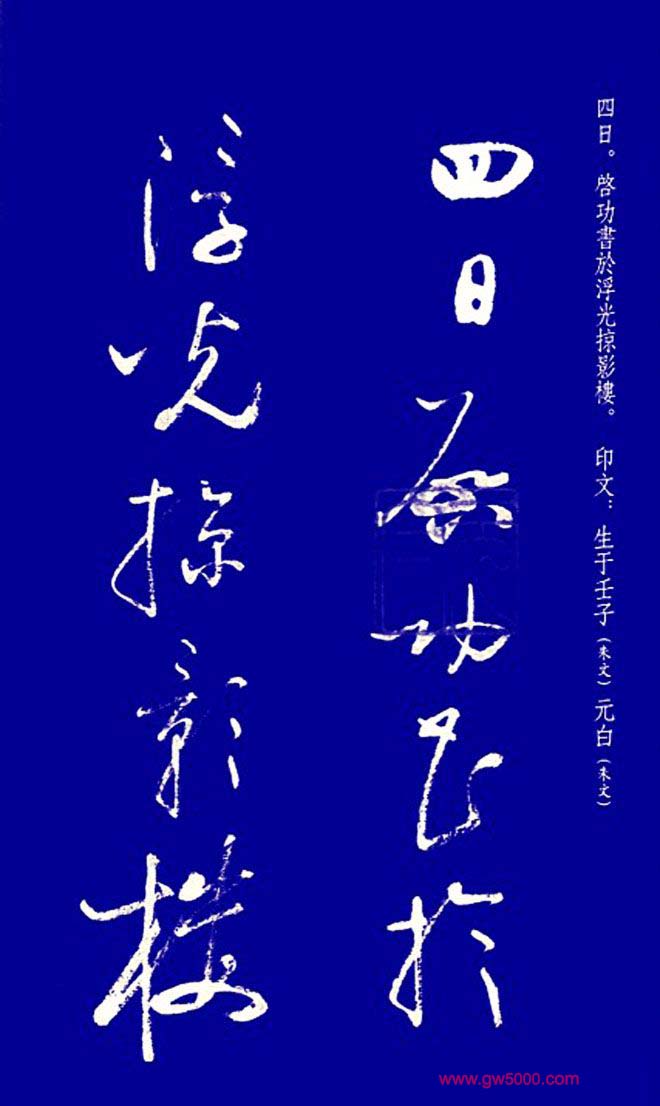 四日。啓功書於浮光掠影樓。 印文：生于壬子（朱文）元白（朱文）
四日啓功書於
浮光掠影樓
www.gw5000.com